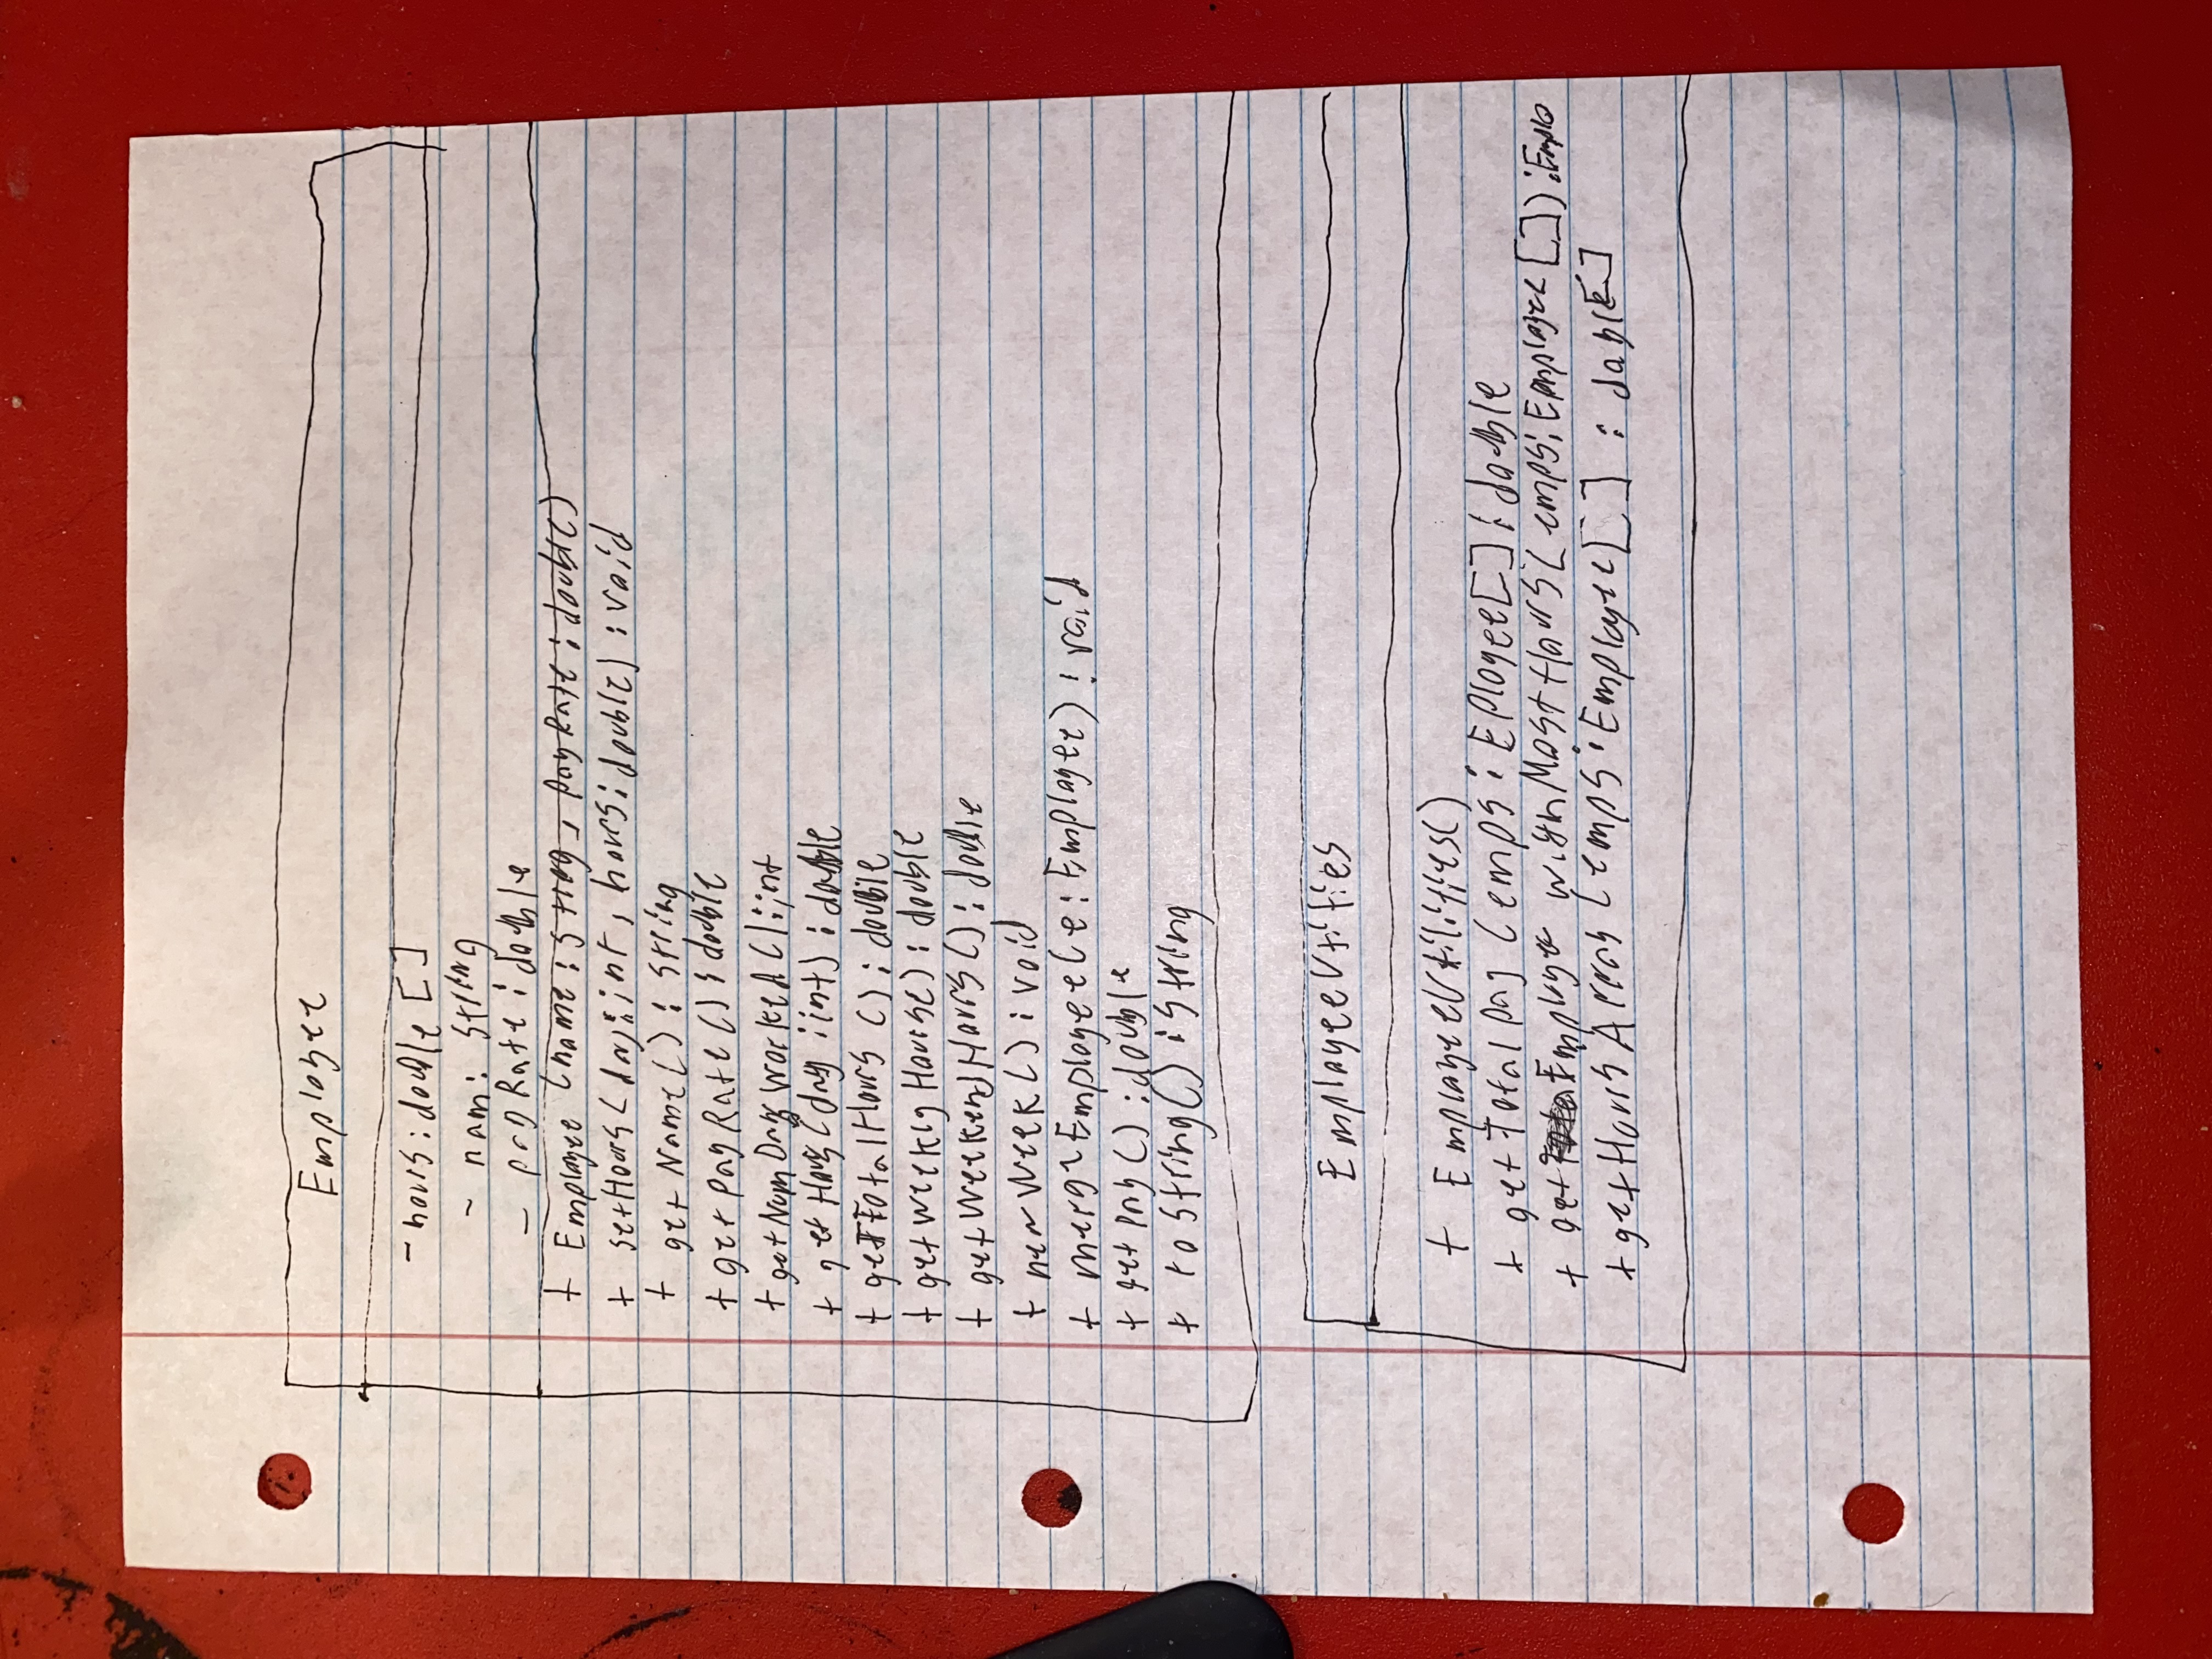 Employee
- hours : double []
- nam : String
- payRate : double
+ Employee (name : String, payRate : double)
+ setHours(day : int, hours : double) : void
+ getName() : String
+ getPayRate() : double
+ getNumDaysWorked() : int
+ getHours(day : int) : double
+ getTotalHours () : double
+ getWeeklyHours() : double
+ getWeekendHours() : double
+ newWeek() : void
+ mergeEmployee(e : Employee) : void
+ getPay() : double
+ toString() : String
EmployeeUtities
+ EmployeeUtilities()
+ getTotalPay (emps : Eployee[] : double
+ getEmployee withMostHours(emps : Epmployee[]) : Emplo
+ getHoursArray (emps : Employee[] : double[]